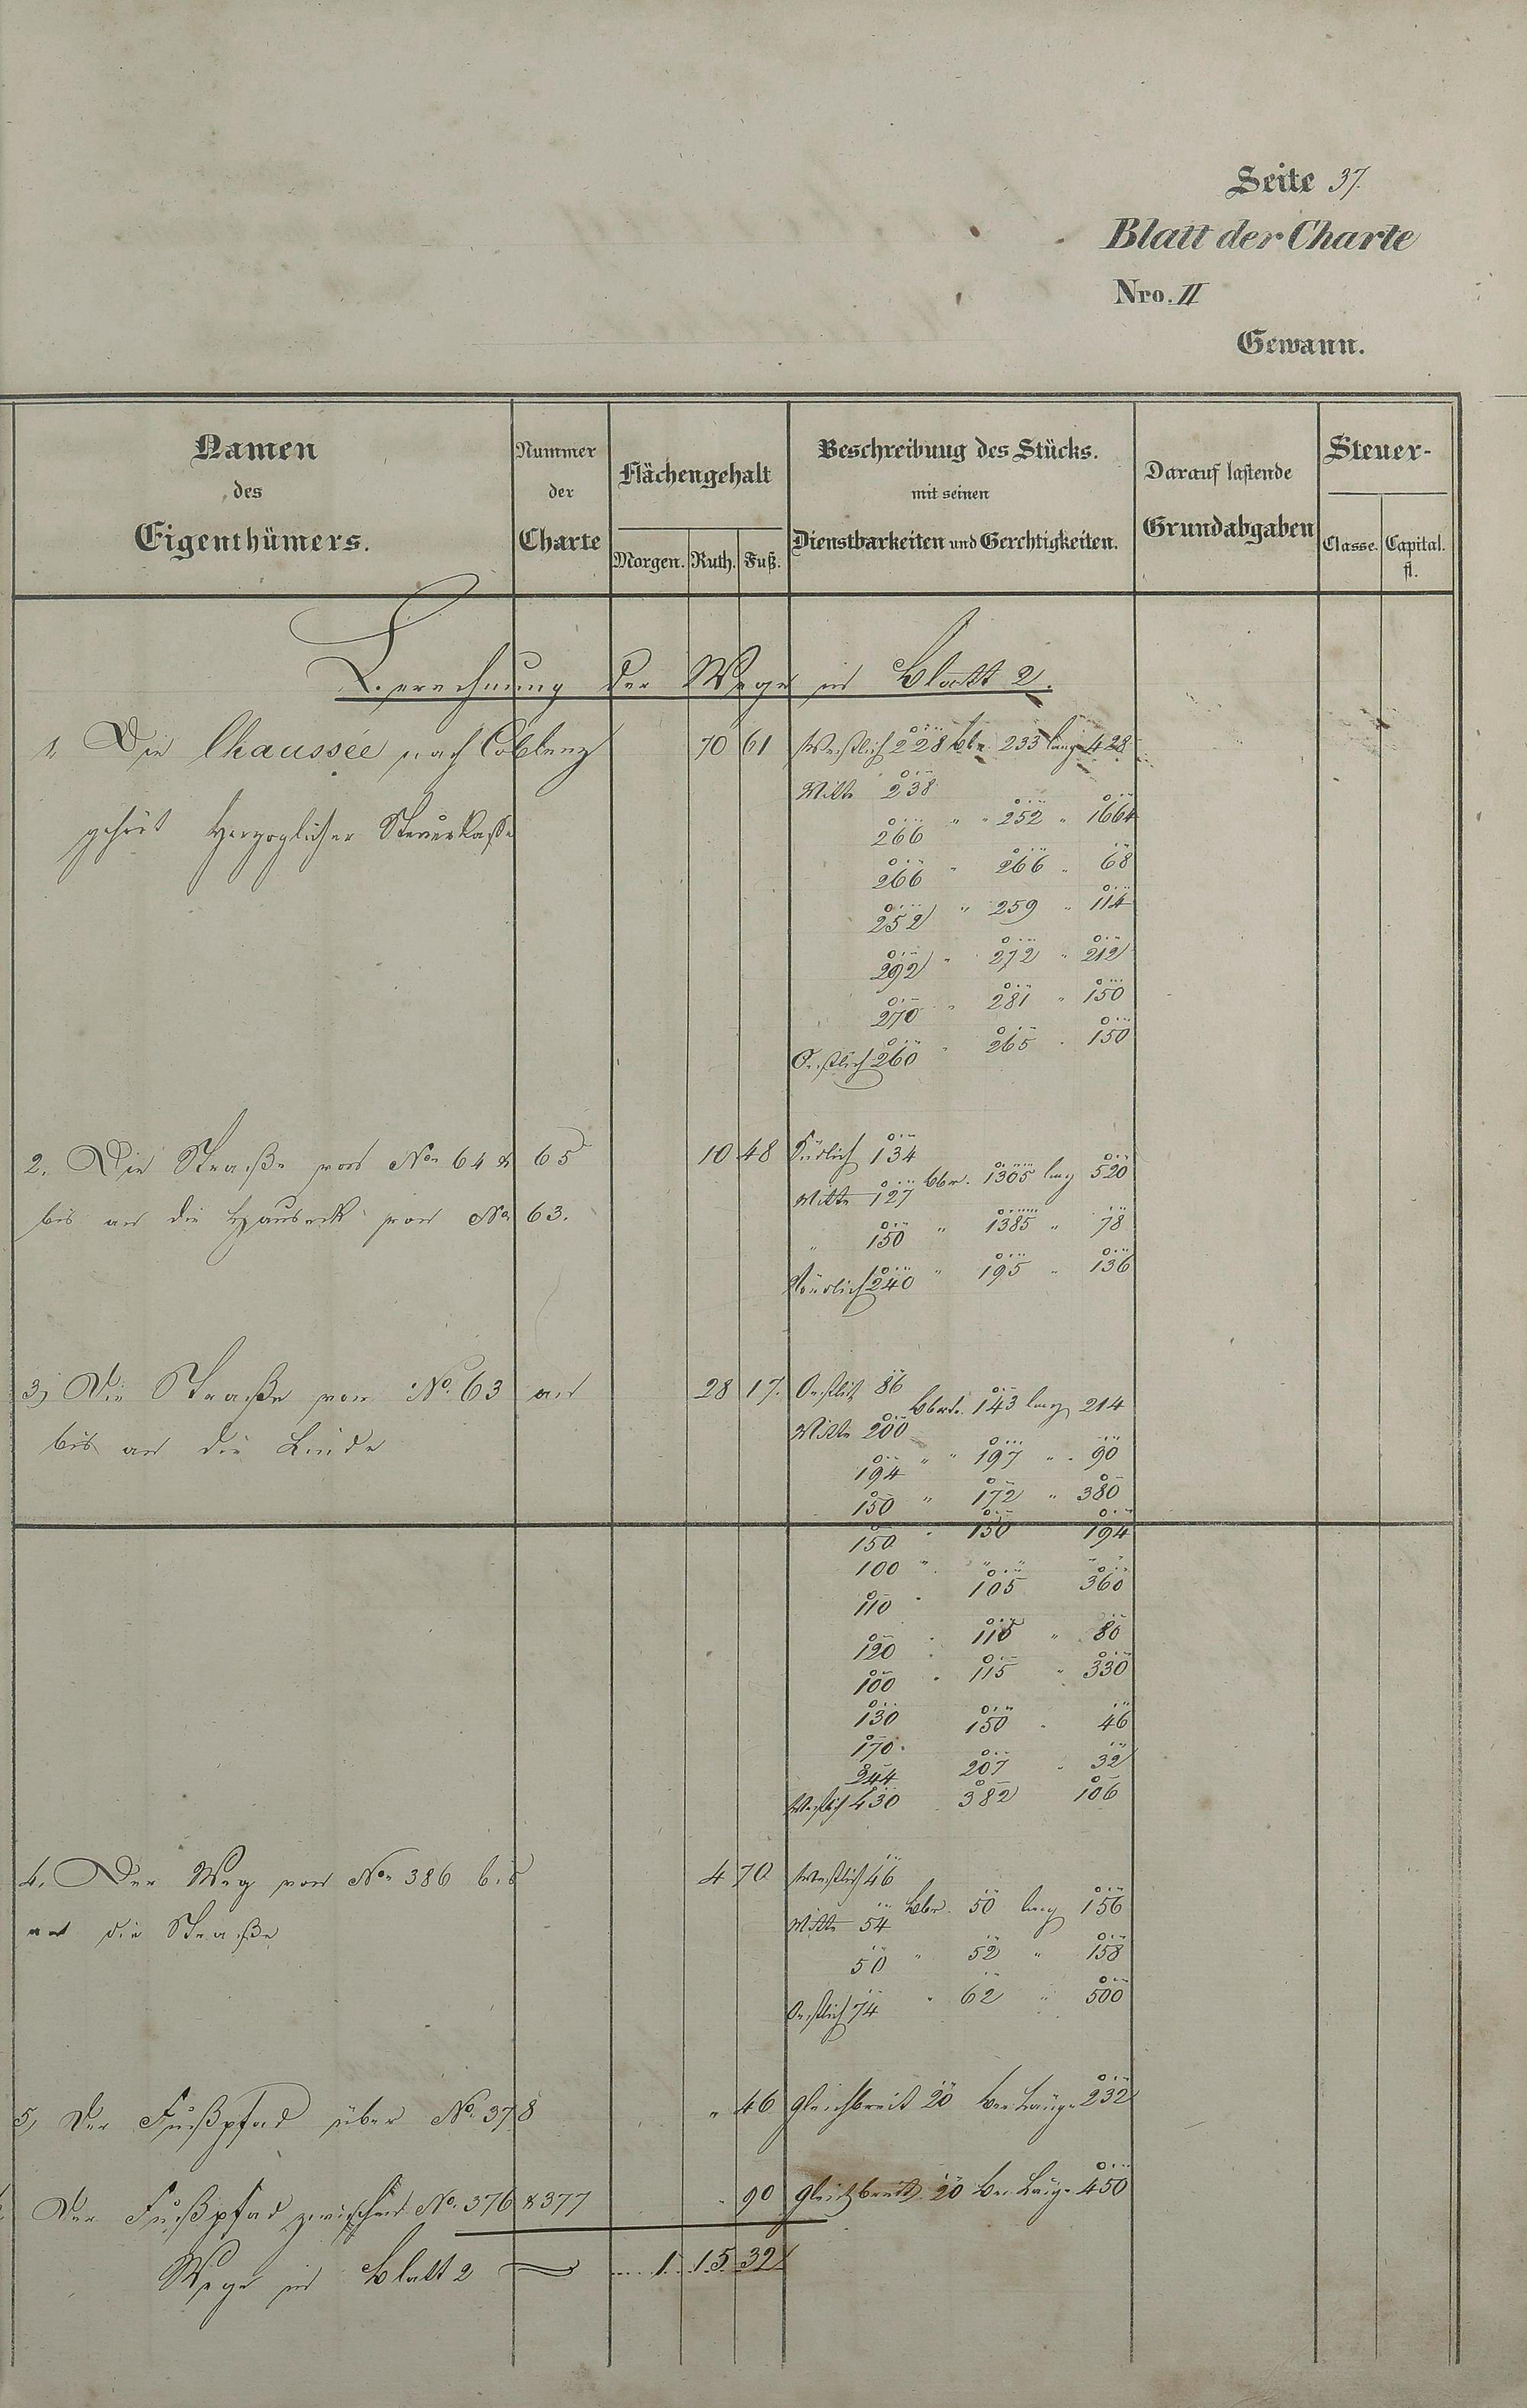 Seite 37.
Blatt der Charte
Nro. II
Gewann.
Namen des Eigenthümers.
Nummer der Charte
Flächengehalt
Morgen. Ruth. Fuß.
Beschreibung des Stücks. mit seinen Dienstbarkeiten und Gerechtigkeiten.
Darauf lastende Grundabgaben
Steuer-
Classe. Capital. fl.
Berechnung der Wege in Blatt 2.
1. Die Chaussée nach Coblenz 70 61 Westlich 228 bbr. 233 lang 428
Mitte 238
gehört Herzoglicher Steuerkasse
266 " " 252 " 1664
266 " 266 " 68
252 " 259 " 114
292 " 272 " 212
270 " 281 " 150
Oestlich 260 " 265 " 150
2. Die Straße von No 64 & 65 10 48 Südlich 134
Mitte 127 bbr. 1305 lang 520
bis an die Hauseck von No 63.
" 150 " 1385 " 78
Nördlich 240 " 195 " 136
3) Die Straße von No. 63 an 28 17. Oestlich 86
bbrt. 143 lang 214
bis an die Linde
Mitte 200
194 " " 197 " " 90
150 " 172 " 380
150 " 150 194
100 " " " "
110 " 105 360
120 " 115 " 80
100 " 115 " 330
130 150 " 46
170.
244 207 " 32
Westlich 430 382 106
4. Der Weg von No 386 bis 4 70 Westlich 46
an die Straße
Mitte 54 bbr. 50 lang 156
50 " 52 " 158
Oestlich 74 " 62 " 500
5, Der Fußpfad über No. 378 " 46 gleichbreit 20 Länge 232
Der Fußpfad zwischen No. 376 & 377 " 90 gleichbreit 20 Länge 450
Wege in Blatt 2 1 15 32